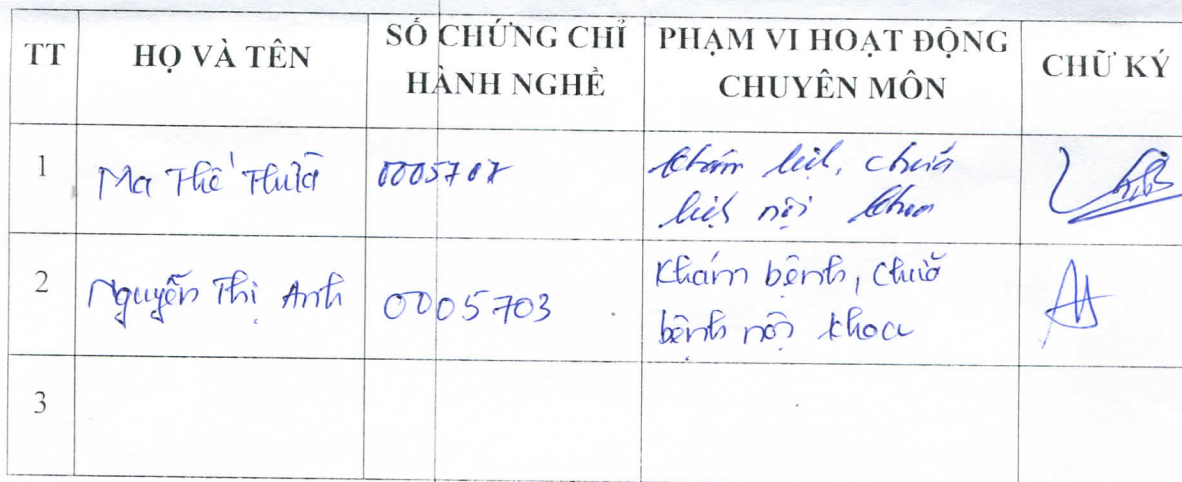 TT
HỌ VÀ TÊN
SỐ CHỨNG CHỈ
HÀNH NGHỀ
PHẠM VI HOẠT ĐỘNG
CHUYÊN MÔN
CHỮ KÝ
1
Ma Thế
khám bệnh, chữa
bệnh nội khoa
2
Nguyễn Thị Anh
0005703
Khám bệnh, chữa
bệnh nội khoa
3